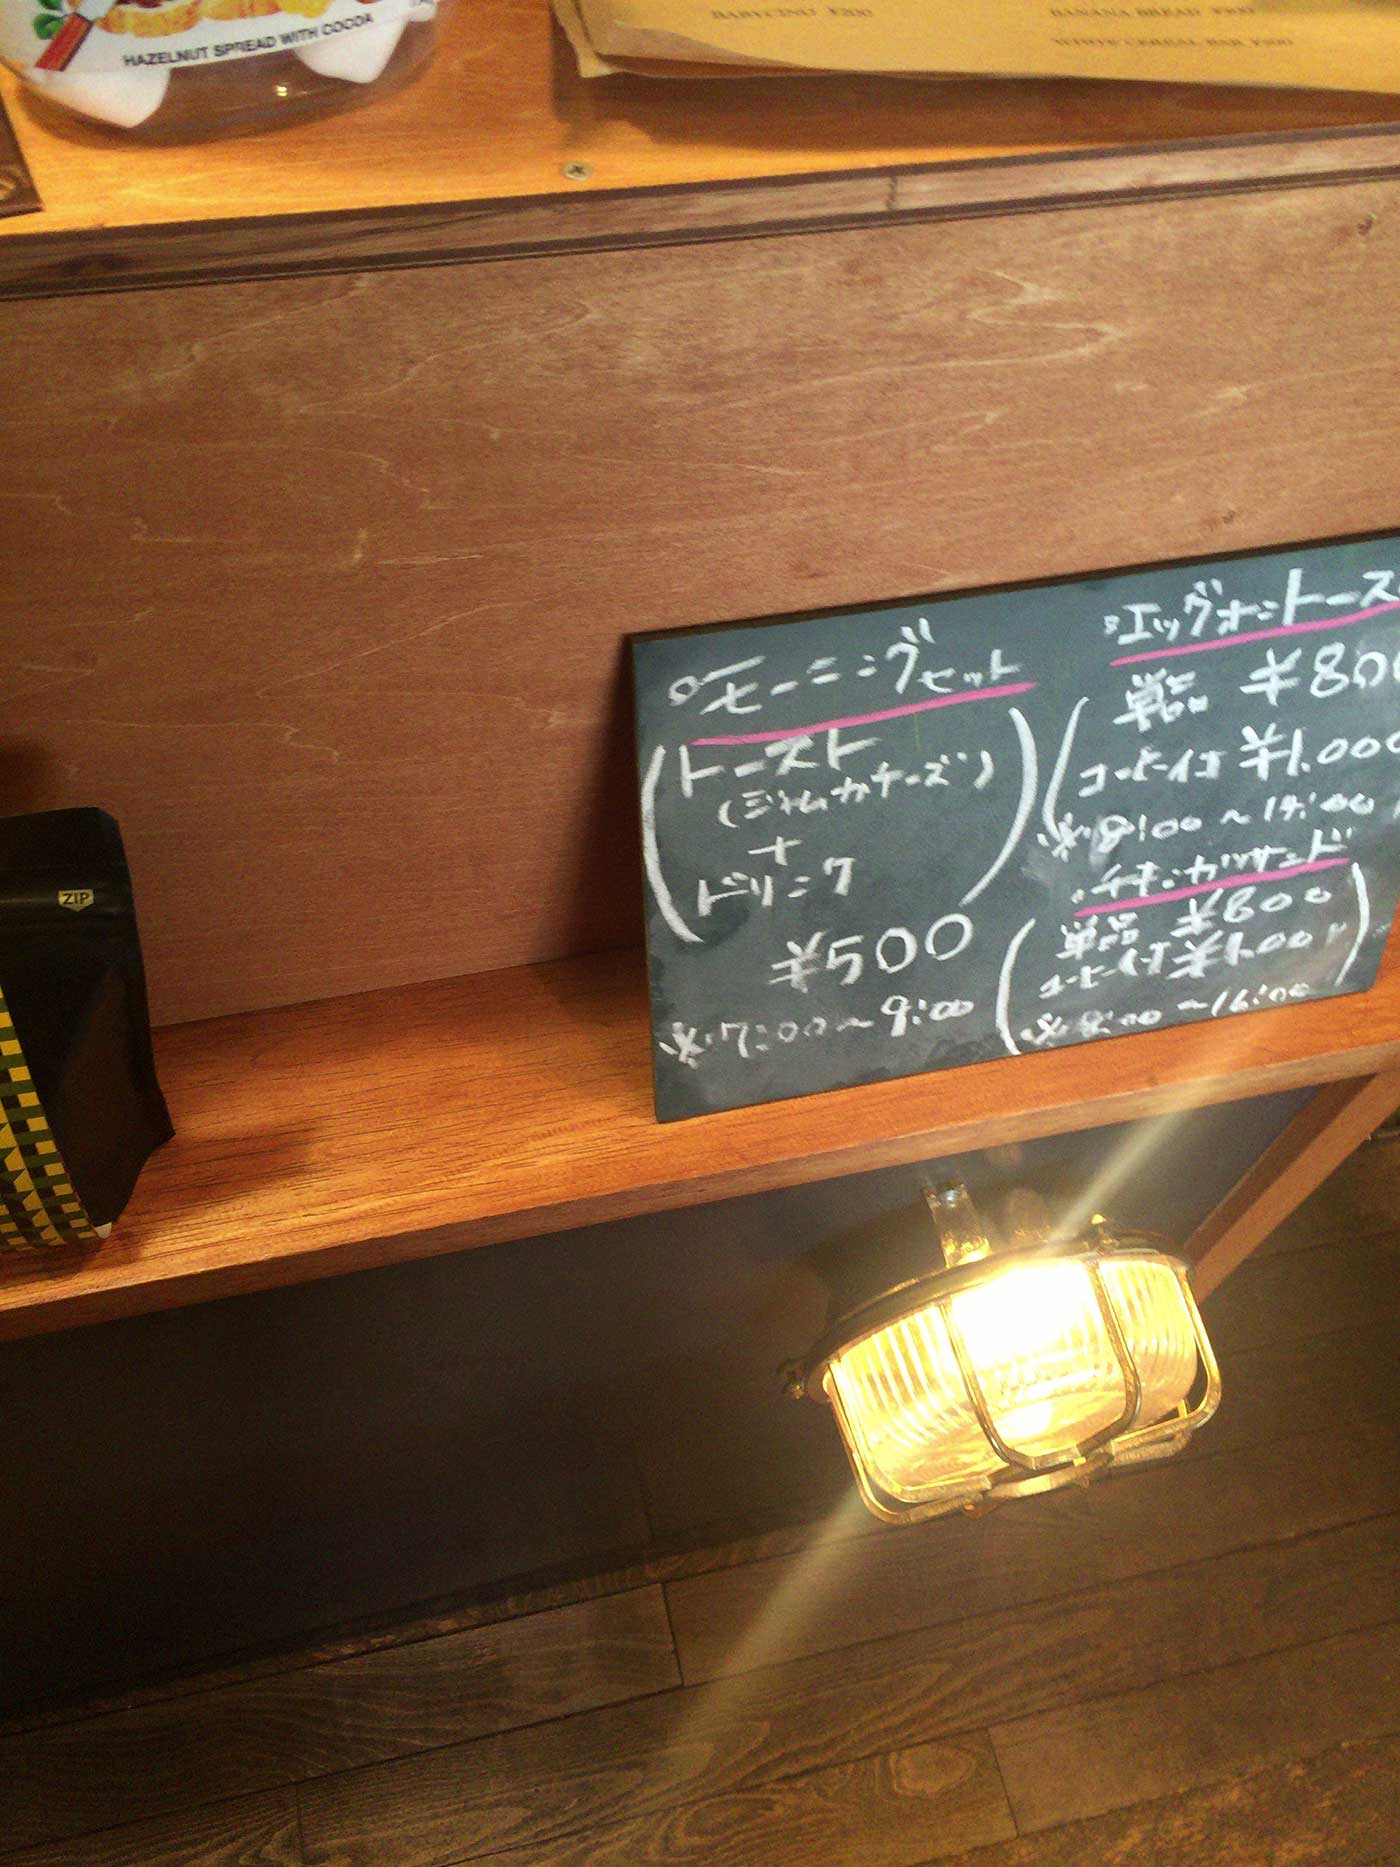 HAZELNUT SPREAD WITH COCOA
BABYCINO ¥200
BANANA BREAD
WHITE CEREAL BAR
ZIP
モーニングセット
(トースト
(ジャムかチーズ)
+
ドリンク)
¥500
※7:00~9:00
エッグオントース
(単品 ¥800
コーヒー付 ¥1.000
※8:00~14:00
チキンカツサンド
(単品 ¥800
コーヒー付 ¥1.00
※8:00~16:00)